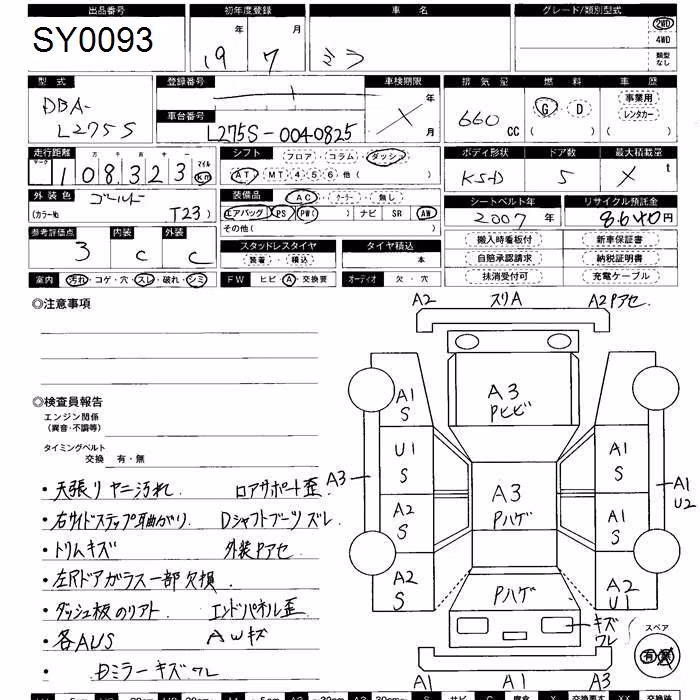 出品番号 初年度登録 車名 グレード/類別型式
SY0093 19年 7月 ミラ 2WD 4WD 類型なし
型式 登録番号 車検期限 排気量 燃料 車歴
DBA-
L275S
車台番号 L275S-0040825
X 年 月
660 CC
G・D ( )
事業用 レンタカー ( )
走行距離 マイル Km
108323
シフト フロア・コラム・ダッシュ
AT・MT 4 5 6 他( )
ボディ形状 ドア数 最大積載量
K5D 5 X t
外装色 ゴールド
(カラーNo. T23)
装備品 AC・クーラー・無し
エアバッグ PS PW( ) ナビ SR AW
その他( )
シートベルト年 リサイクル預託金
2007年 8640円
参考評価点 内装 外装
3 C C
スタッドレスタイヤ タイヤ積込
装着・積込 本
搬入時看板付 新車保証書
自賠承認請求 納税証明書
抹消受付可 充電ケーブル
室内 汚れ・コゲ・穴・スレ・破れ・シミ FW ヒビ・A・交換要 オーディオ 欠・穴
◎注意事項
A2 スリA A2Pアセ
◎検査員報告
エンジン関係
(異音・不調等)
タイミングベルト
交換 有・無
・天張りヤニ汚れ ロアサポート歪
・右サイドステップ耳曲がり Dシャフトブーツズレ
・トリムキズ 外装Pアセ
・左Rドアガラス一部欠損
・ダッシュ板のリアト エンドパネル歪
・各AUS AWキズ
・Dミラーキズワレ
A3 Pヒビ
A1 S
U1 S
A3
A2 S
A2 S
A3 Pハゲ
Pハゲ
A1 S
A1 S
A1 U2
A2 U1
キズ ワレ
スペア
有・無
A1 A1 A1